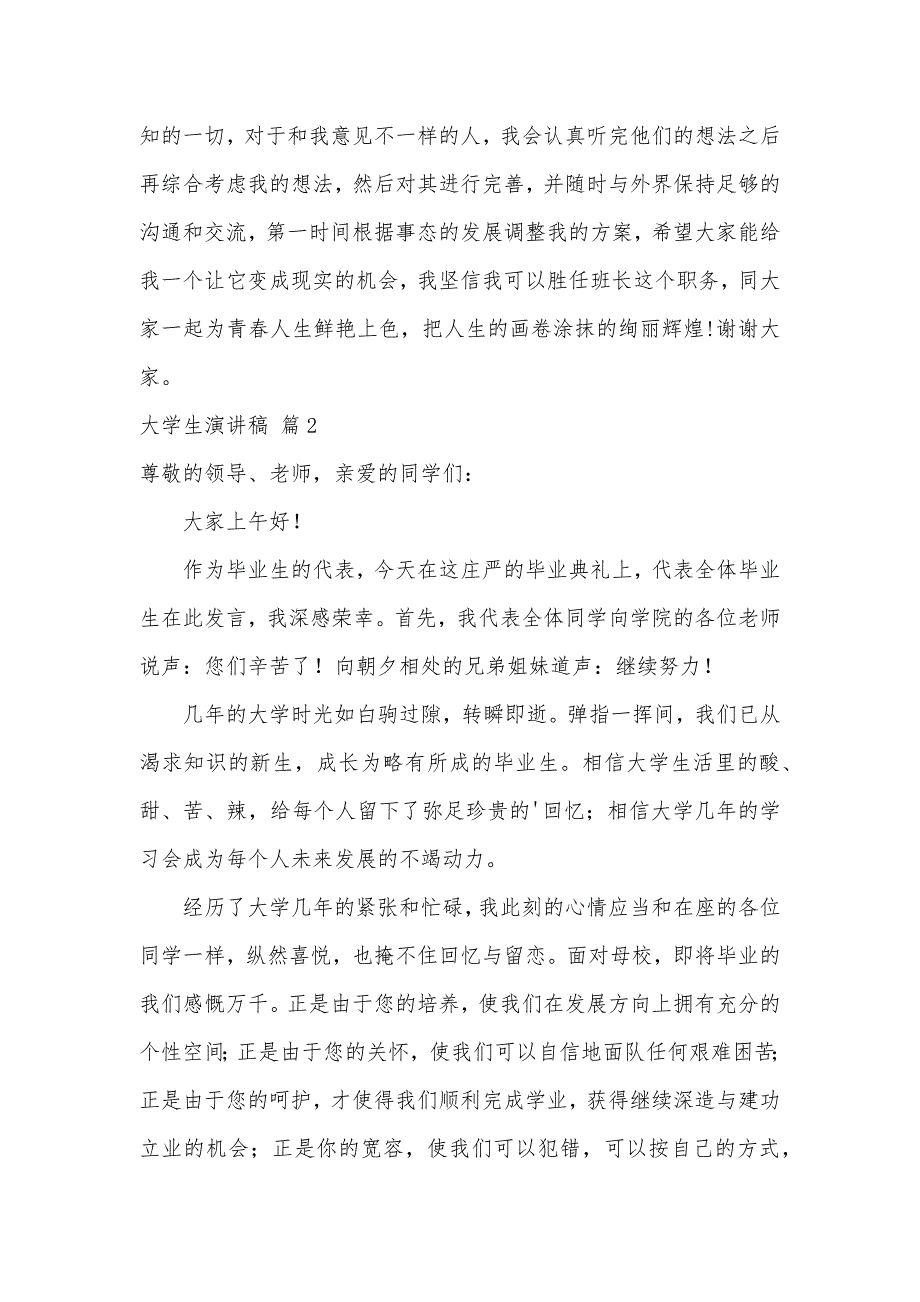 知的一切，对于和我意见不一样的人，我会认真听完他们的想法之后
再综合考虑我的想法，然后对其进行完善，并随时与外界保持足够的
沟通和交流，第一时间根据事态的发展调整我的方案，希望大家能给
我一个让它变成现实的机会，我坚信我可以胜任班长这个职务，同大
家一起为青春人生鲜艳上色，把人生的画卷涂抹的绚丽辉煌!谢谢大
家。
大学生演讲稿 篇2
尊敬的领导、老师，亲爱的同学们：
大家上午好！
作为毕业生的代表，今天在这庄严的毕业典礼上，代表全体毕业
生在此发言，我深感荣幸。首先，我代表全体同学向学院的各位老师
说声：您们辛苦了！向朝夕相处的兄弟姐妹道声：继续努力！
几年的大学时光如白驹过隙，转瞬即逝。弹指一挥间，我们已从
渴求知识的新生，成长为略有所成的毕业生。相信大学生活里的酸、
甜、苦、辣，给每个人留下了弥足珍贵的'回忆；相信大学几年的学
习会成为每个人未来发展的不竭动力。
经历了大学几年的紧张和忙碌，我此刻的心情应当和在座的各位
同学一样，纵然喜悦，也掩不住回忆与留恋。面对母校，即将毕业的
我们感慨万千。正是由于您的培养，使我们在发展方向上拥有充分的
个性空间；正是由于您的关怀，使我们可以自信地面队任何艰难困苦；
正是由于您的呵护，才使得我们顺利完成学业，获得继续深造与建功
立业的机会；正是你的宽容，使我们可以犯错，可以按自己的方式，